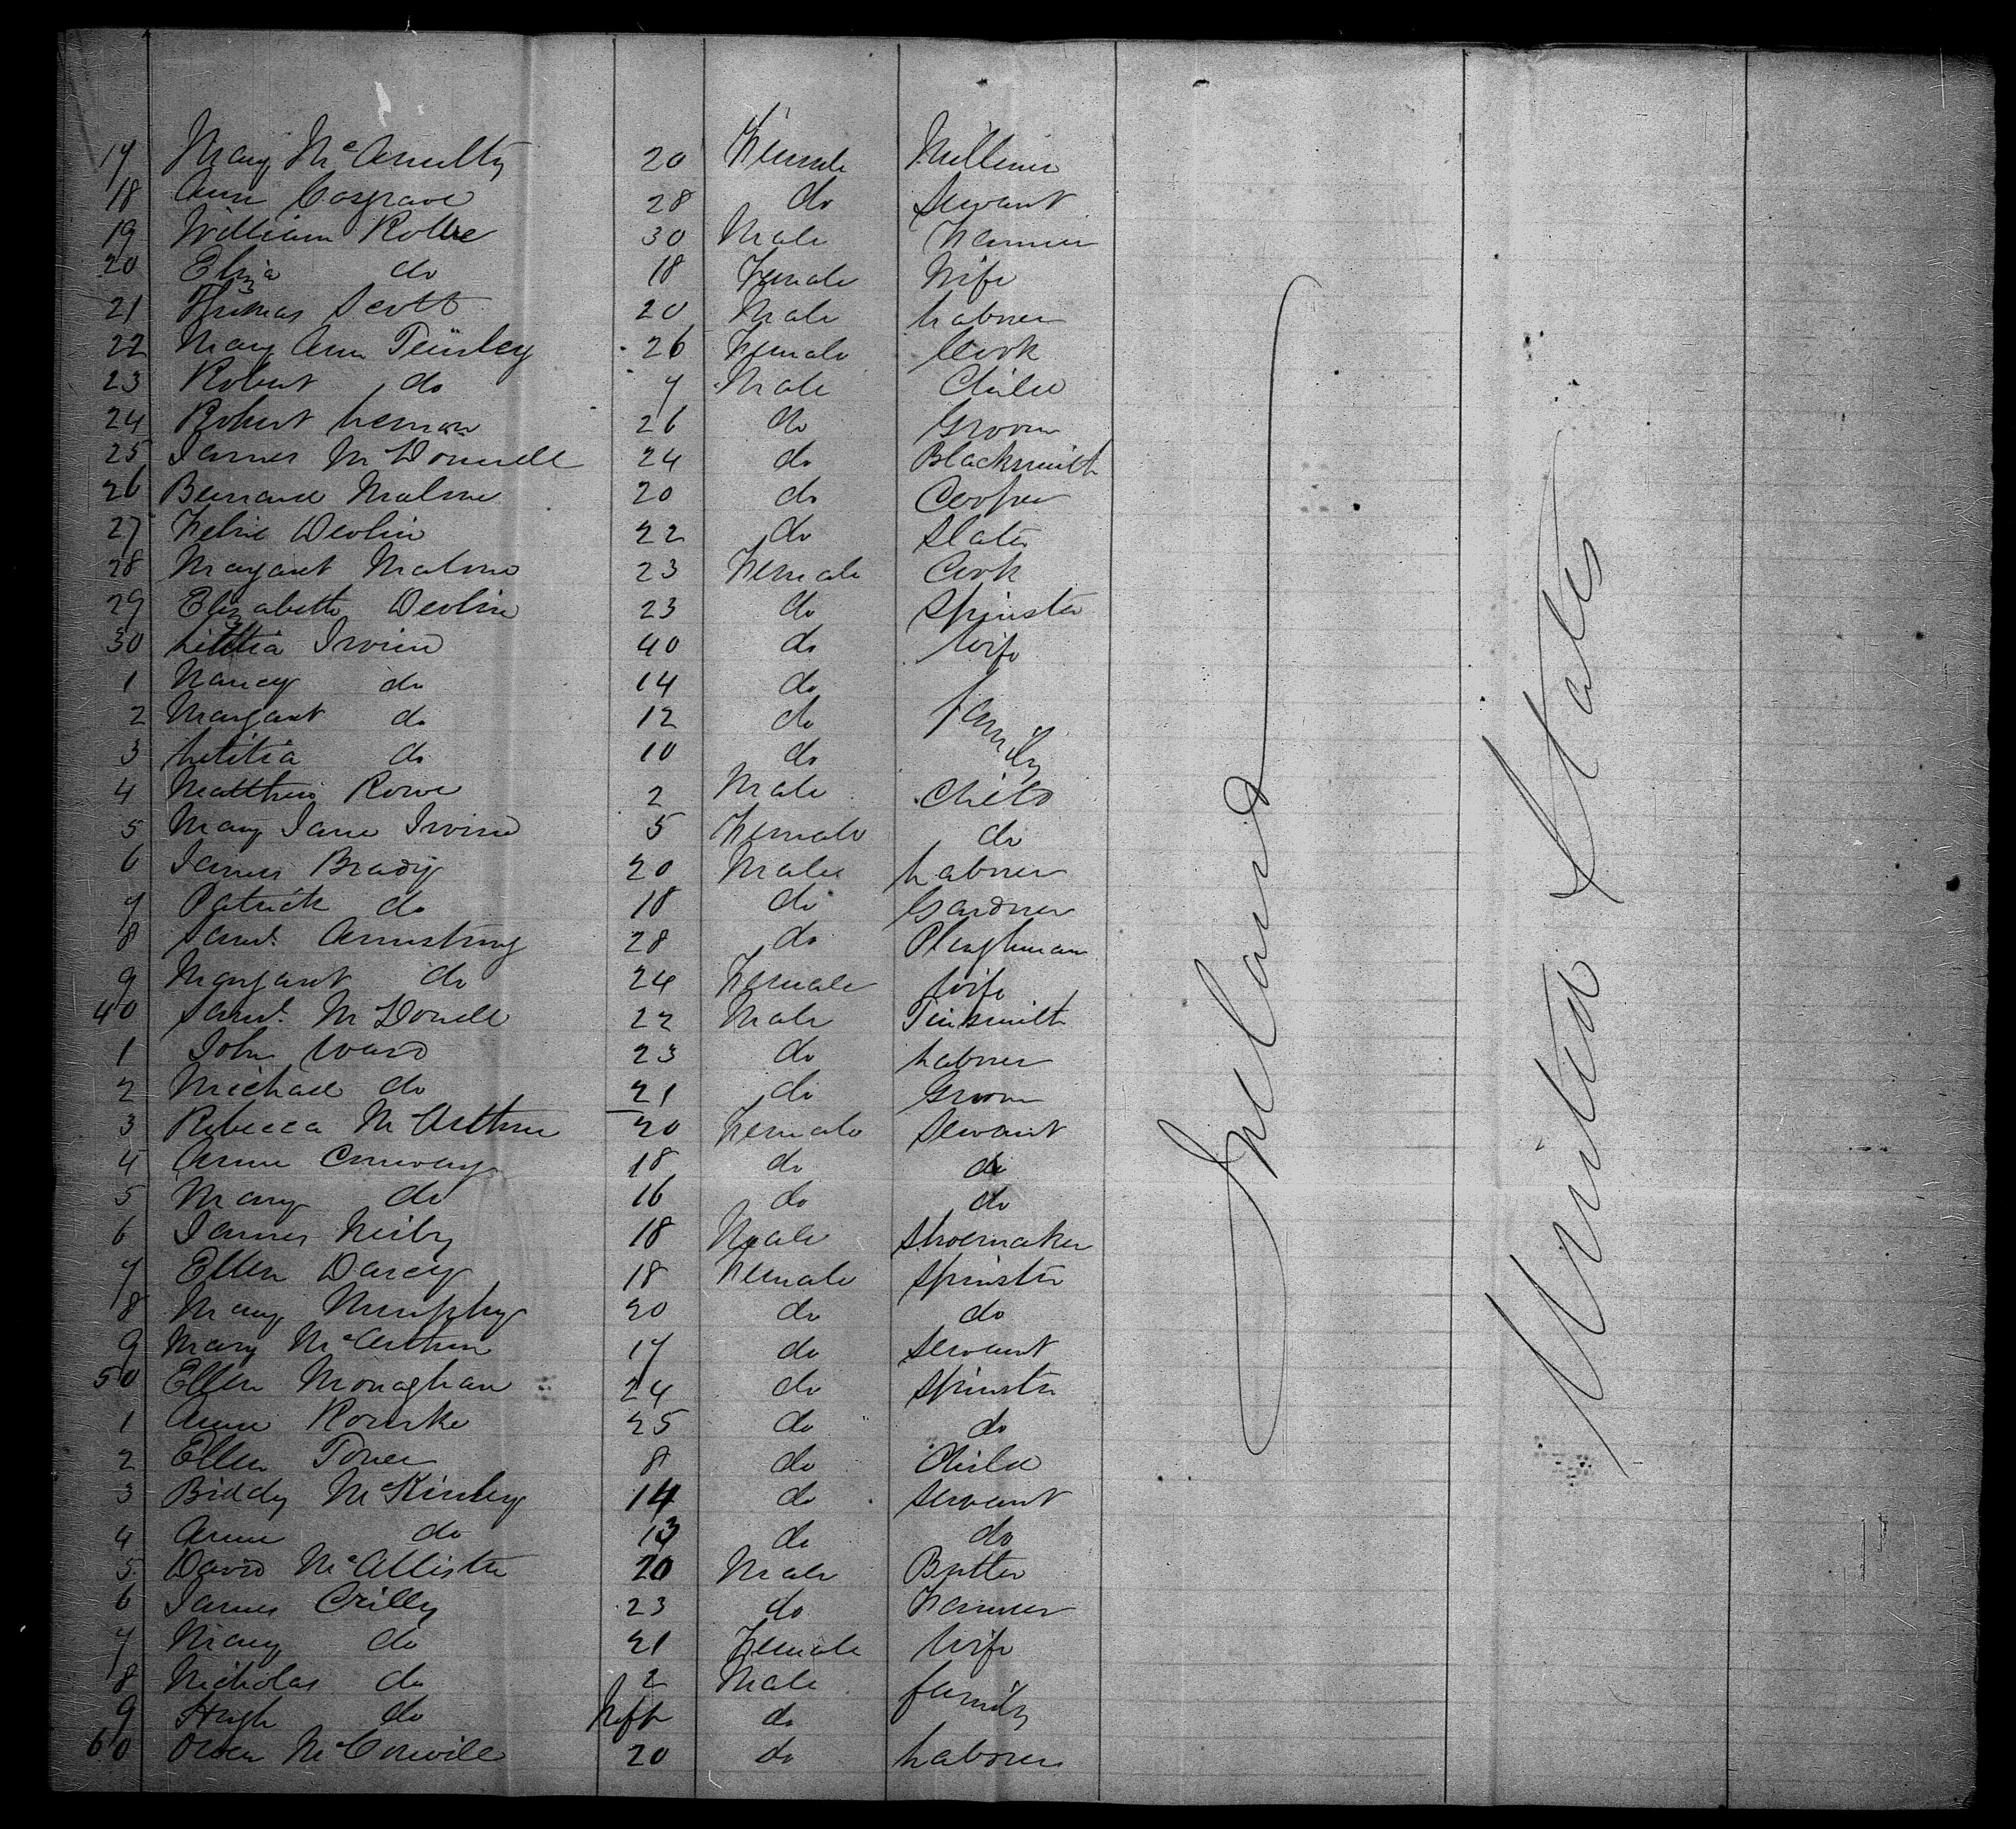 17 Mary McAnulty 20 Female Milliner
18 Ann Cosgrave 28 do Servant
19 William Rolle 30 Male Farmer
20 Eliza do 18 Female Wife
21 Thomas Scott 20 Male Laborer
22 Mary Ann Tinsley 26 Female Cook
23 Robert do 7 Male Child
24 Robert Lemon 26 do Groom
25 James McDonnell 24 do Blacksmith
26 Bernard Malone 20 do Cooper
27 Felix Devlin 22 do Slater
28 Margaret Malone 23 Female Cook
29 Elizabeth Devlin 23 do Spinster
30 Letitia Irvine 40 do Wife
1 Nancy do 14 do
2 Margaret do 12 do family
3 Letitia do 10 do
4 Matthew Rowe 2 Male Child
5 Mary Jane Irvine 5 Female do
6 James Brady 20 Male Laborer
7 Patrick do 18 do Gardner
8 Saml. Armstrong 28 do Ploughman
9 Margaret do 24 Female Wife
40 Saml. McDonell 22 Male Tinsmith
1 John Ward 23 do Laborer
2 Michael do 21 do Groom
3 Rebecca McArthur 20 Female Servant
4 Anne Conway 18 do do
5 Mary do 16 do do
6 James 18 Male Shoemaker
7 Ellen Darcy 18 Female Spinster
8 Mary Murphy 20 do do
9 Mary McArthur 17 do Servant
50 Ellen Monaghan 24 do Spinster
1 Anne Rourke 25 do do
2 Ellen Toner 8 do Child
3 Biddy McKinley 14 do Servant
4 Anne do 13 do do
5 David McAllister 20 Male Butler
6 James Crilly 23 do Farmer
7 Mary do 21 Female Wife
8 Nicholas do 2 Male family
9 Hugh do Inft do
60 Owen McConville 20 do Laborer
Ireland
United States